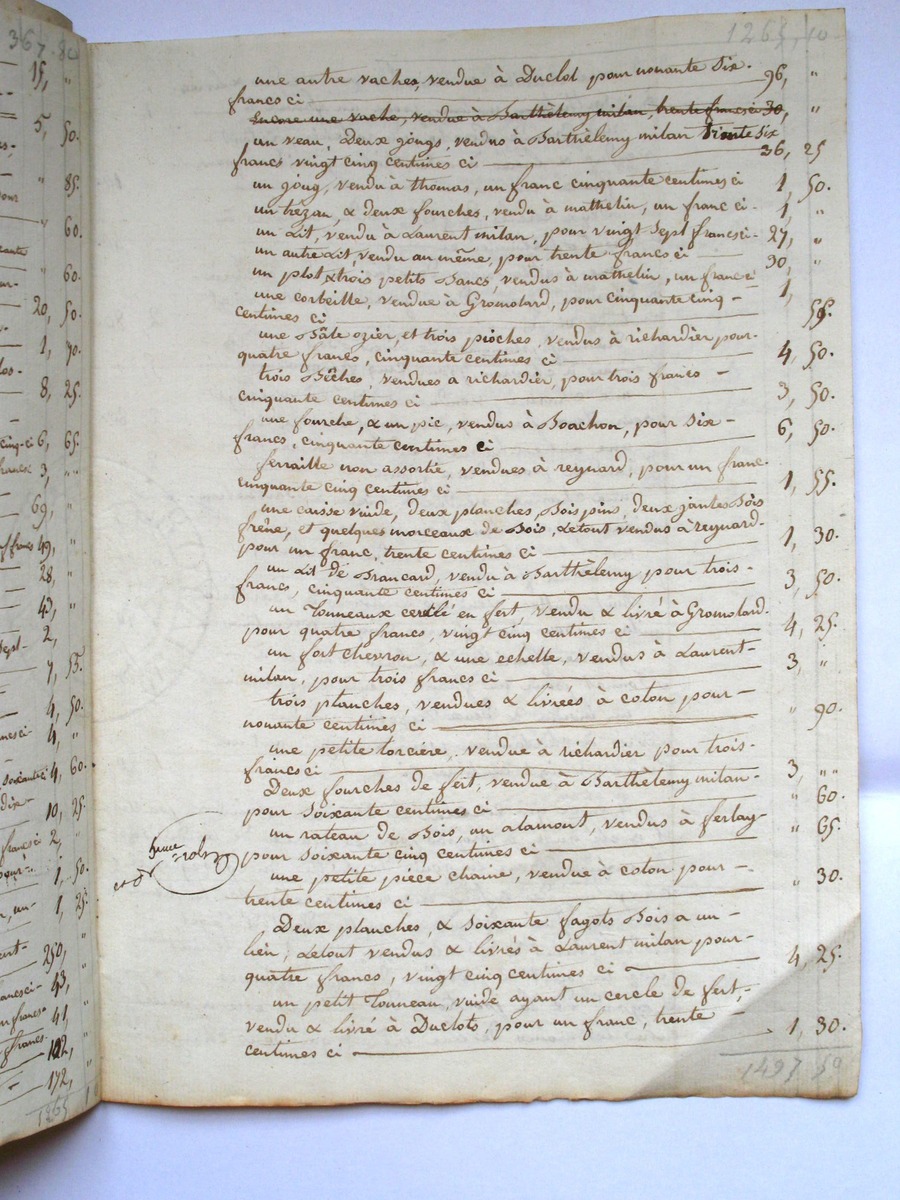 1265, 10
une autre vache, vendue à Duclot pour nonante six
francs ci 96, "
Encore une vache, vendue à Barthèlemy milan, trente francs ci 30, "
un veau, Deux jougs, vendus à Barthèlemy milan trente six
francs vingt cinq centimes ci 36, 25
un joug, vendu à thomas, un franc cinquante centimes ci 1, 50.
un trézan, & deux fourches, vendu à mathelin, un franc ci 1, "
un Lit, vendu à Laurent milan, pour vingt Sept francs ci 27, "
un autre Lit, vendu au même, pour trente francs ci 30, "
un plot & trois petits Bancs, vendus à mathelin, un franc 1,
une corbeille, vendue à Gromolard, pour cinquante cinq
centimes ci 55.
une Bâte ozier, et trois pioches, vendus à richardier pour
quatre francs, cinquante centimes ci 4, 50.
trois Bêches, vendues a richardier, pour trois francs
cinquante centimes ci 3, 50.
une fourche, & un pic, vendus à Boachon, pour six
francs, cinquante centimes ci 6, 50.
ferraille non assortie, vendues à reynard, pour un franc
cinquante cinq centimes ci 1, 55.
une caisse vuide, deux planches Bois pins, deux jantes Bois
frêne, et quelques morceaux de Bois, Letout vendus à reynard
pour un franc, trente centimes ci 1, 30.
un Lit de Brancard, vendu à Barthèlemy pour trois
francs, cinquante centimes ci 3, 50.
un Tonneaux cerclé en fert, vendu & livré à Gromolard
pour quatre francs, vingt cinq centimes ci 4, 25.
un fort chevron, & une echelle, vendus à Laurent
milan, pour trois francs ci 3, "
trois planches, vendues & livrées à coton pour
nonante centimes ci " 90.
une petite torcière, vendue à richardier pour trois
francs ci 3, "
Deux fourches de fert, vendue à Barthèlemy milan
pour soixante centimes ci " 60.
un rateau de Bois, un alamont, vendus à ferlay
pour soixante cinq centimes ci " 65.
une petite pièce chaine, vendue à coton pour
trente centimes ci " 30.
Deux planches, & soixante fagots Bois a un
lien, Letout vendus & livrés à Laurent milan pour
quatre francs, vingt cinq centimes ci 4, 25.
un petit Tonneau, vuide ayant un cercle de fert,
vendu & livré à Duclots, pour un franc, trente
centimes ci 1, 30.
1497 50
367. 80
15, "
5, 50.
" 85.
" 60.
" 60.
20, 50.
1, 70.
8, 25.
6, 65.
3, "
69, "
49, "
28, "
43, "
2,
7, 55.
4, 50.
4, "
4, 60.
10, 25.
2, "
1, 50.
1, 25.
250, "
43,
41, "
102, "
172, "
1265